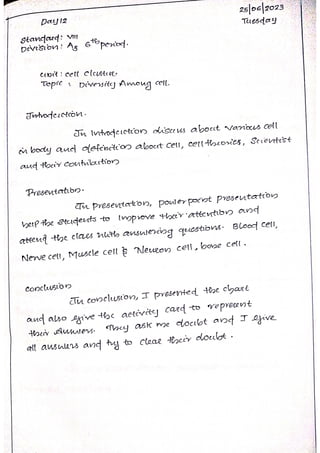 25/06/2023
Day 12
Tuesday
Standard: VIII
Division: A3 6th period.
Unit: Cell Cluster
Topic: Diversity Among cell.
Introduction.
In Introduction discuss about various cell
in body and definition about cell, cell theories, Scientist
and their contribution
Presentation.
In presentation, powerpoint presentation
help the students to improve their attention and
attend the class with answering questions. Blood cell,
Nerve cell, Muscle cell & Neuron cell, bone cell.
Conclusion
In conclusion, I presented the chart
and also give the activity card to represent
their answers. They ask me doubt and I give
all answers and try to clear their doubt.